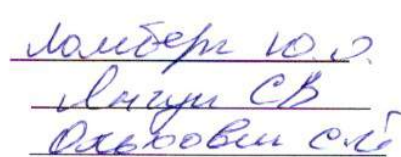 Ломберг Ю.О.
Янгун СВ
Ольховик С.Й